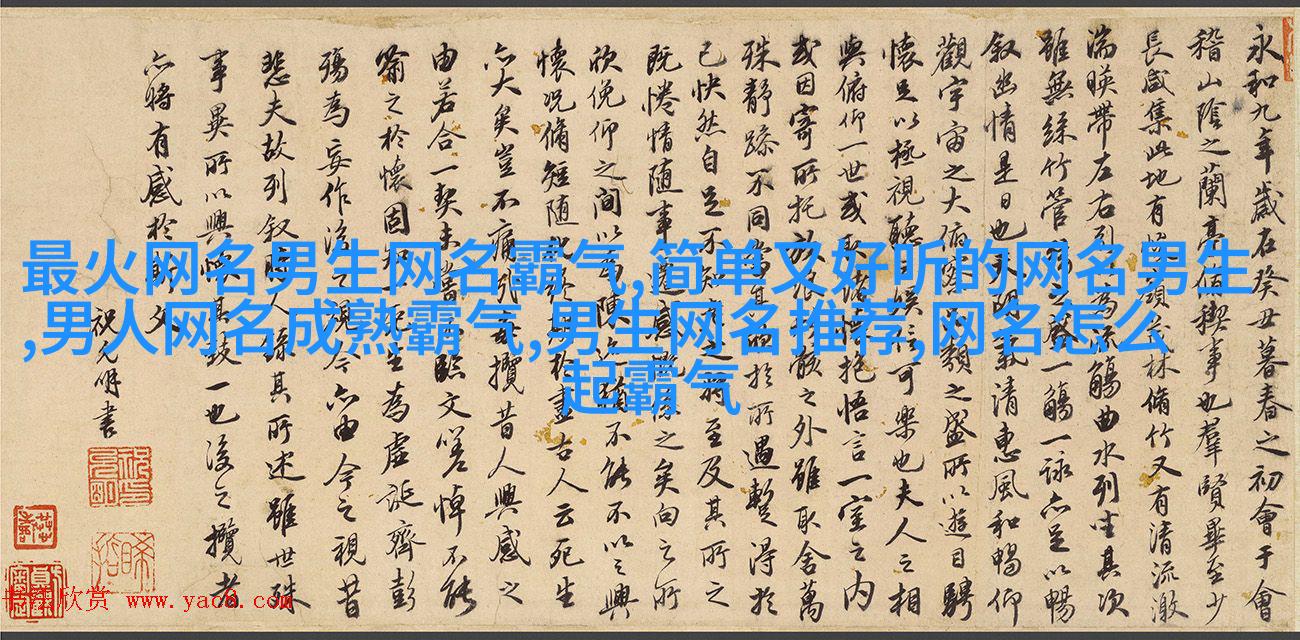 最火网名男生网名霸气,简单又好听的网名男生
,男人网名成熟霸气,男生网名推荐,网名怎么
起霸气
永和九年歲在癸丑暮春之初會于會
稽山陰之蘭亭脩稧事也羣賢畢至少
長咸集此地有領茂林脩竹又有清流激
湍暎帶左右列為流觴曲水列坐其次
雖無絲竹管之盛一觴一詠亦足以暢
叙幽情是日也天朗氣清惠風和暢仰
觀宇宙之大俯察類之盛所以遊目騁
懷足以極視聽娛信可樂也夫人之相
與俯仰一世或取諸懷抱悟言一室之内
或因寄所托放浪骸之外雖取舍萬
殊靜躁不同當其於所遇暫得於
已快然自足不知之將至及其所之
既惓情随事遷感慨係之矣向之所
欣俛仰之間以為陳迹猶不能不以之興
懷況脩短随化終於盡古人云死生
亦大矣豈不痛哉攬昔人興感之
由若合一契未嘗臨文嗟悼不能
喻之於懷固知一死生為虛誕齊彭
殤為妄作後之視今亦由今之視昔
悲夫故列叙時人錄其所述雖世殊
事異所以興懷其致一也後之攬者
亦將有感於斯文
祝允明書
书法欣赏 www.yac8.com